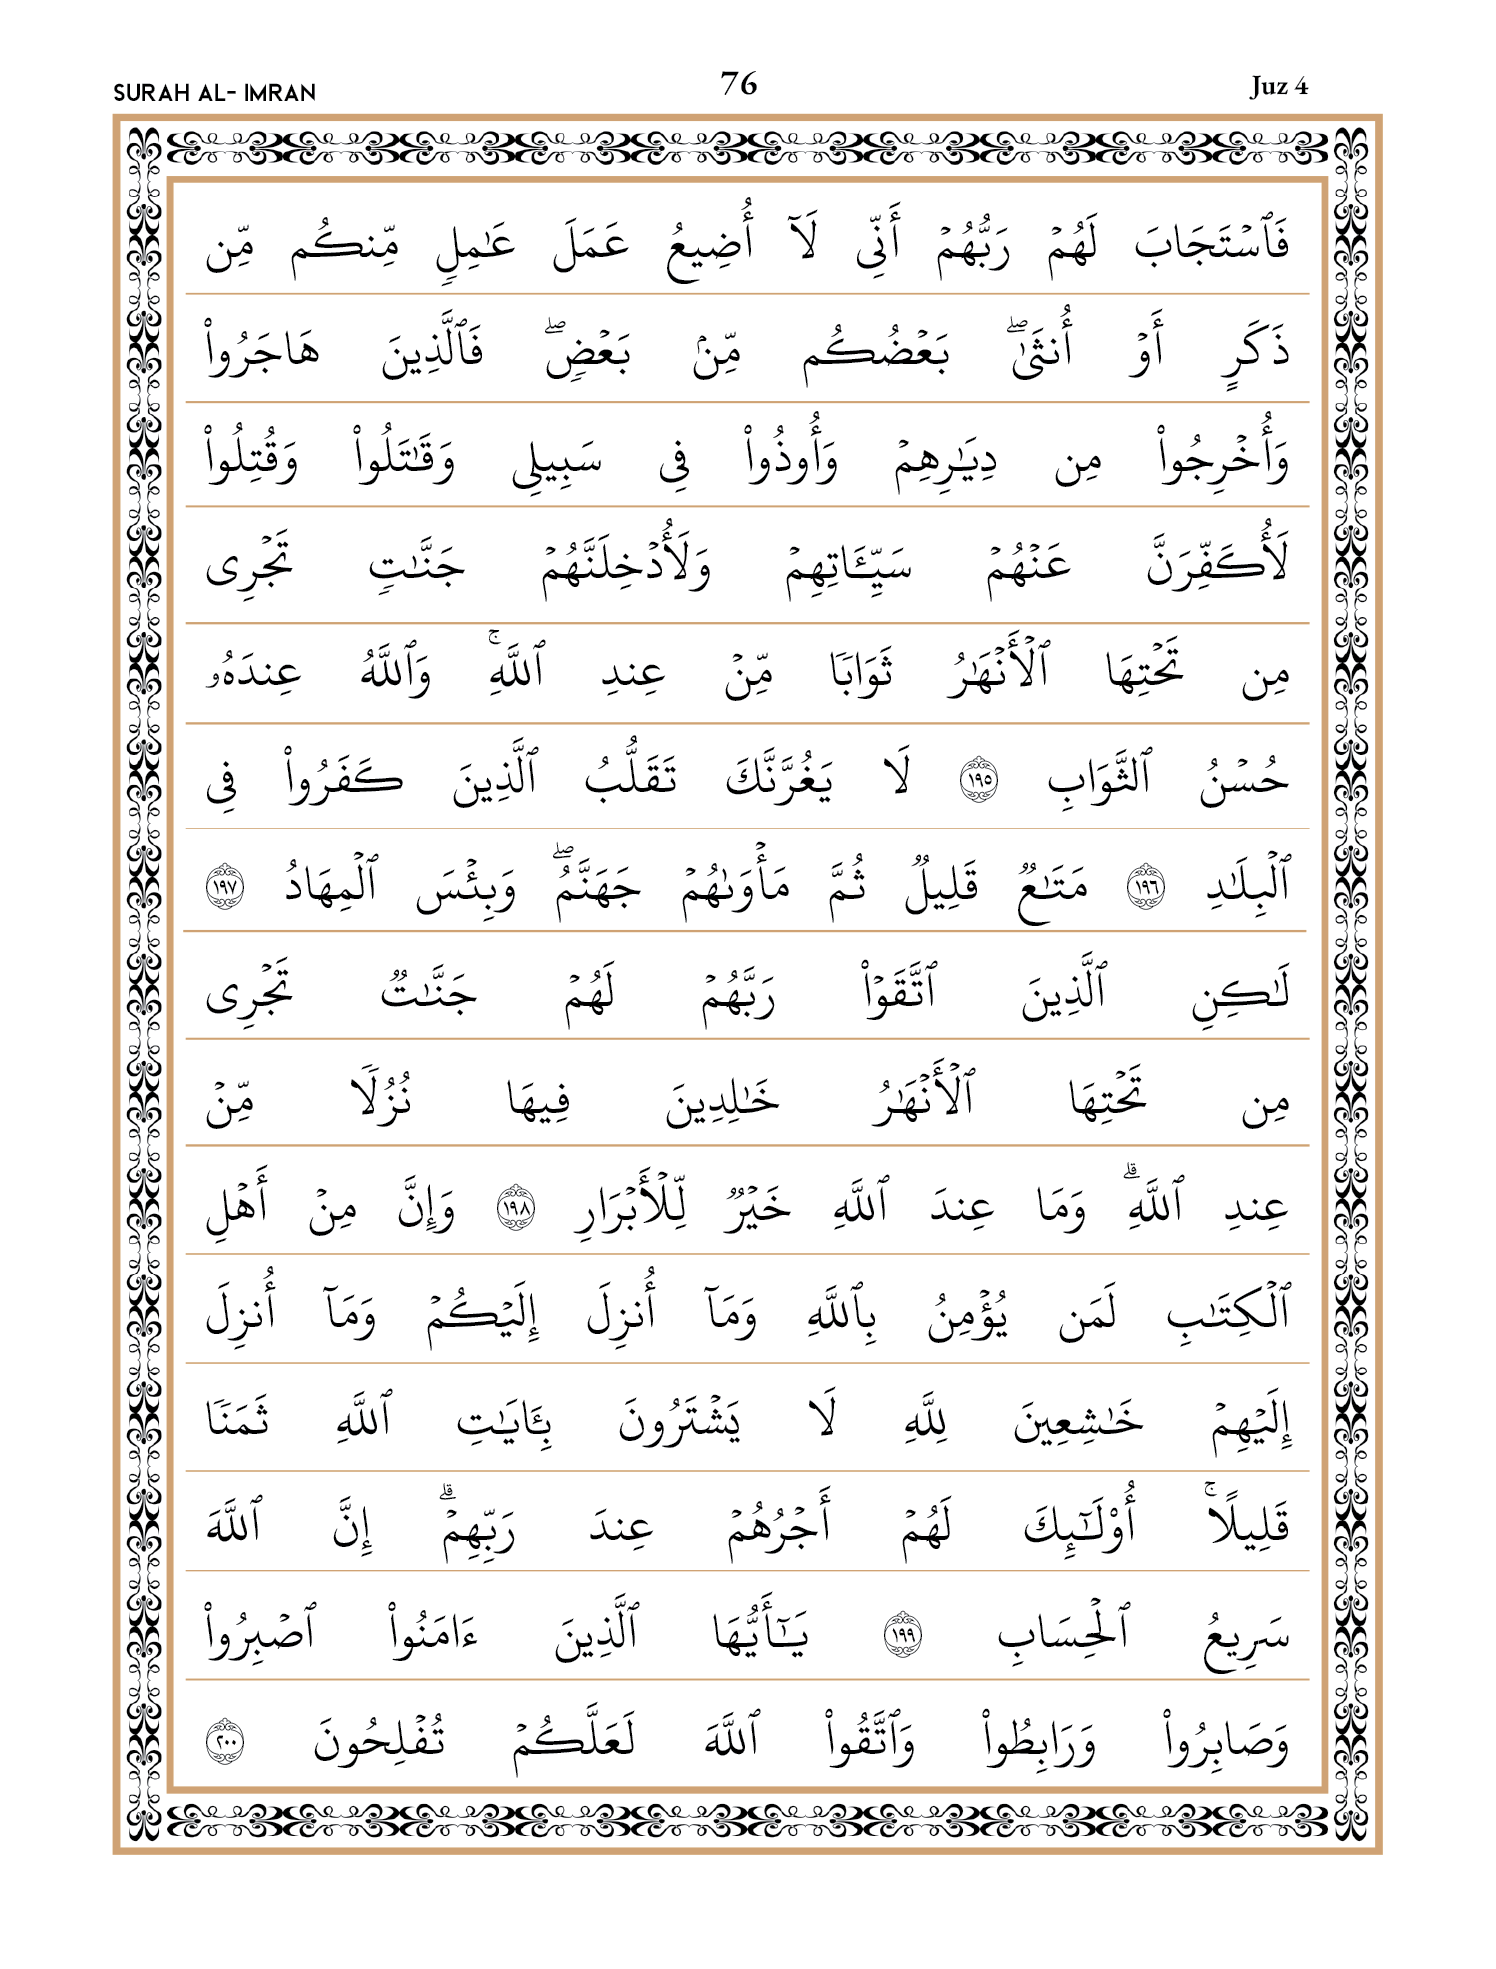 SURAH AL- IMRAN 76 Juz 4
فَٱسْتَجَابَ لَهُمْ رَبُّهُمْ أَنِّى لَآ أُضِيعُ عَمَلَ عَـٰمِلٍ مِّنكُم مِّن
ذَكَرٍ أَوْ أُنثَىٰ ۖ بَعْضُكُم مِّنۢ بَعْضٍ ۖ فَٱلَّذِينَ هَاجَرُوا۟
وَأُخْرِجُوا۟ مِن دِيَـٰرِهِمْ وَأُوذُوا۟ فِى سَبِيلِى وَقَـٰتَلُوا۟ وَقُتِلُوا۟
لَأُكَفِّرَنَّ عَنْهُمْ سَيِّـَٔاتِهِمْ وَلَأُدْخِلَنَّهُمْ جَنَّـٰتٍ تَجْرِى
مِن تَحْتِهَا ٱلْأَنْهَـٰرُ ثَوَابًا مِّنْ عِندِ ٱللَّهِ ۚ وَٱللَّهُ عِندَهُۥ
حُسْنُ ٱلثَّوَابِ ١٩٥ لَا يَغُرَّنَّكَ تَقَلُّبُ ٱلَّذِينَ كَفَرُوا۟ فِى
ٱلْبِلَـٰدِ ١٩٦ مَتَـٰعٌ قَلِيلٌ ثُمَّ مَأْوَىٰهُمْ جَهَنَّمُ ۖ وَبِئْسَ ٱلْمِهَادُ ١٩٧
لَـٰكِنِ ٱلَّذِينَ ٱتَّقَوْا۟ رَبَّهُمْ لَهُمْ جَنَّـٰتٌ تَجْرِى
مِن تَحْتِهَا ٱلْأَنْهَـٰرُ خَـٰلِدِينَ فِيهَا نُزُلًا مِّنْ
عِندِ ٱللَّهِ ۗ وَمَا عِندَ ٱللَّهِ خَيْرٌ لِّلْأَبْرَارِ ١٩٨ وَإِنَّ مِنْ أَهْلِ
ٱلْكِتَـٰبِ لَمَن يُؤْمِنُ بِٱللَّهِ وَمَآ أُنزِلَ إِلَيْكُمْ وَمَآ أُنزِلَ
إِلَيْهِمْ خَـٰشِعِينَ لِلَّهِ لَا يَشْتَرُونَ بِـَٔايَـٰتِ ٱللَّهِ ثَمَنًا
قَلِيلًا ۚ أُو۟لَـٰٓئِكَ لَهُمْ أَجْرُهُمْ عِندَ رَبِّهِمْ ۗ إِنَّ ٱللَّهَ
سَرِيعُ ٱلْحِسَابِ ١٩٩ يَـٰٓأَيُّهَا ٱلَّذِينَ ءَامَنُوا۟ ٱصْبِرُوا۟
وَصَابِرُوا۟ وَرَابِطُوا۟ وَٱتَّقُوا۟ ٱللَّهَ لَعَلَّكُمْ تُفْلِحُونَ ٢٠٠